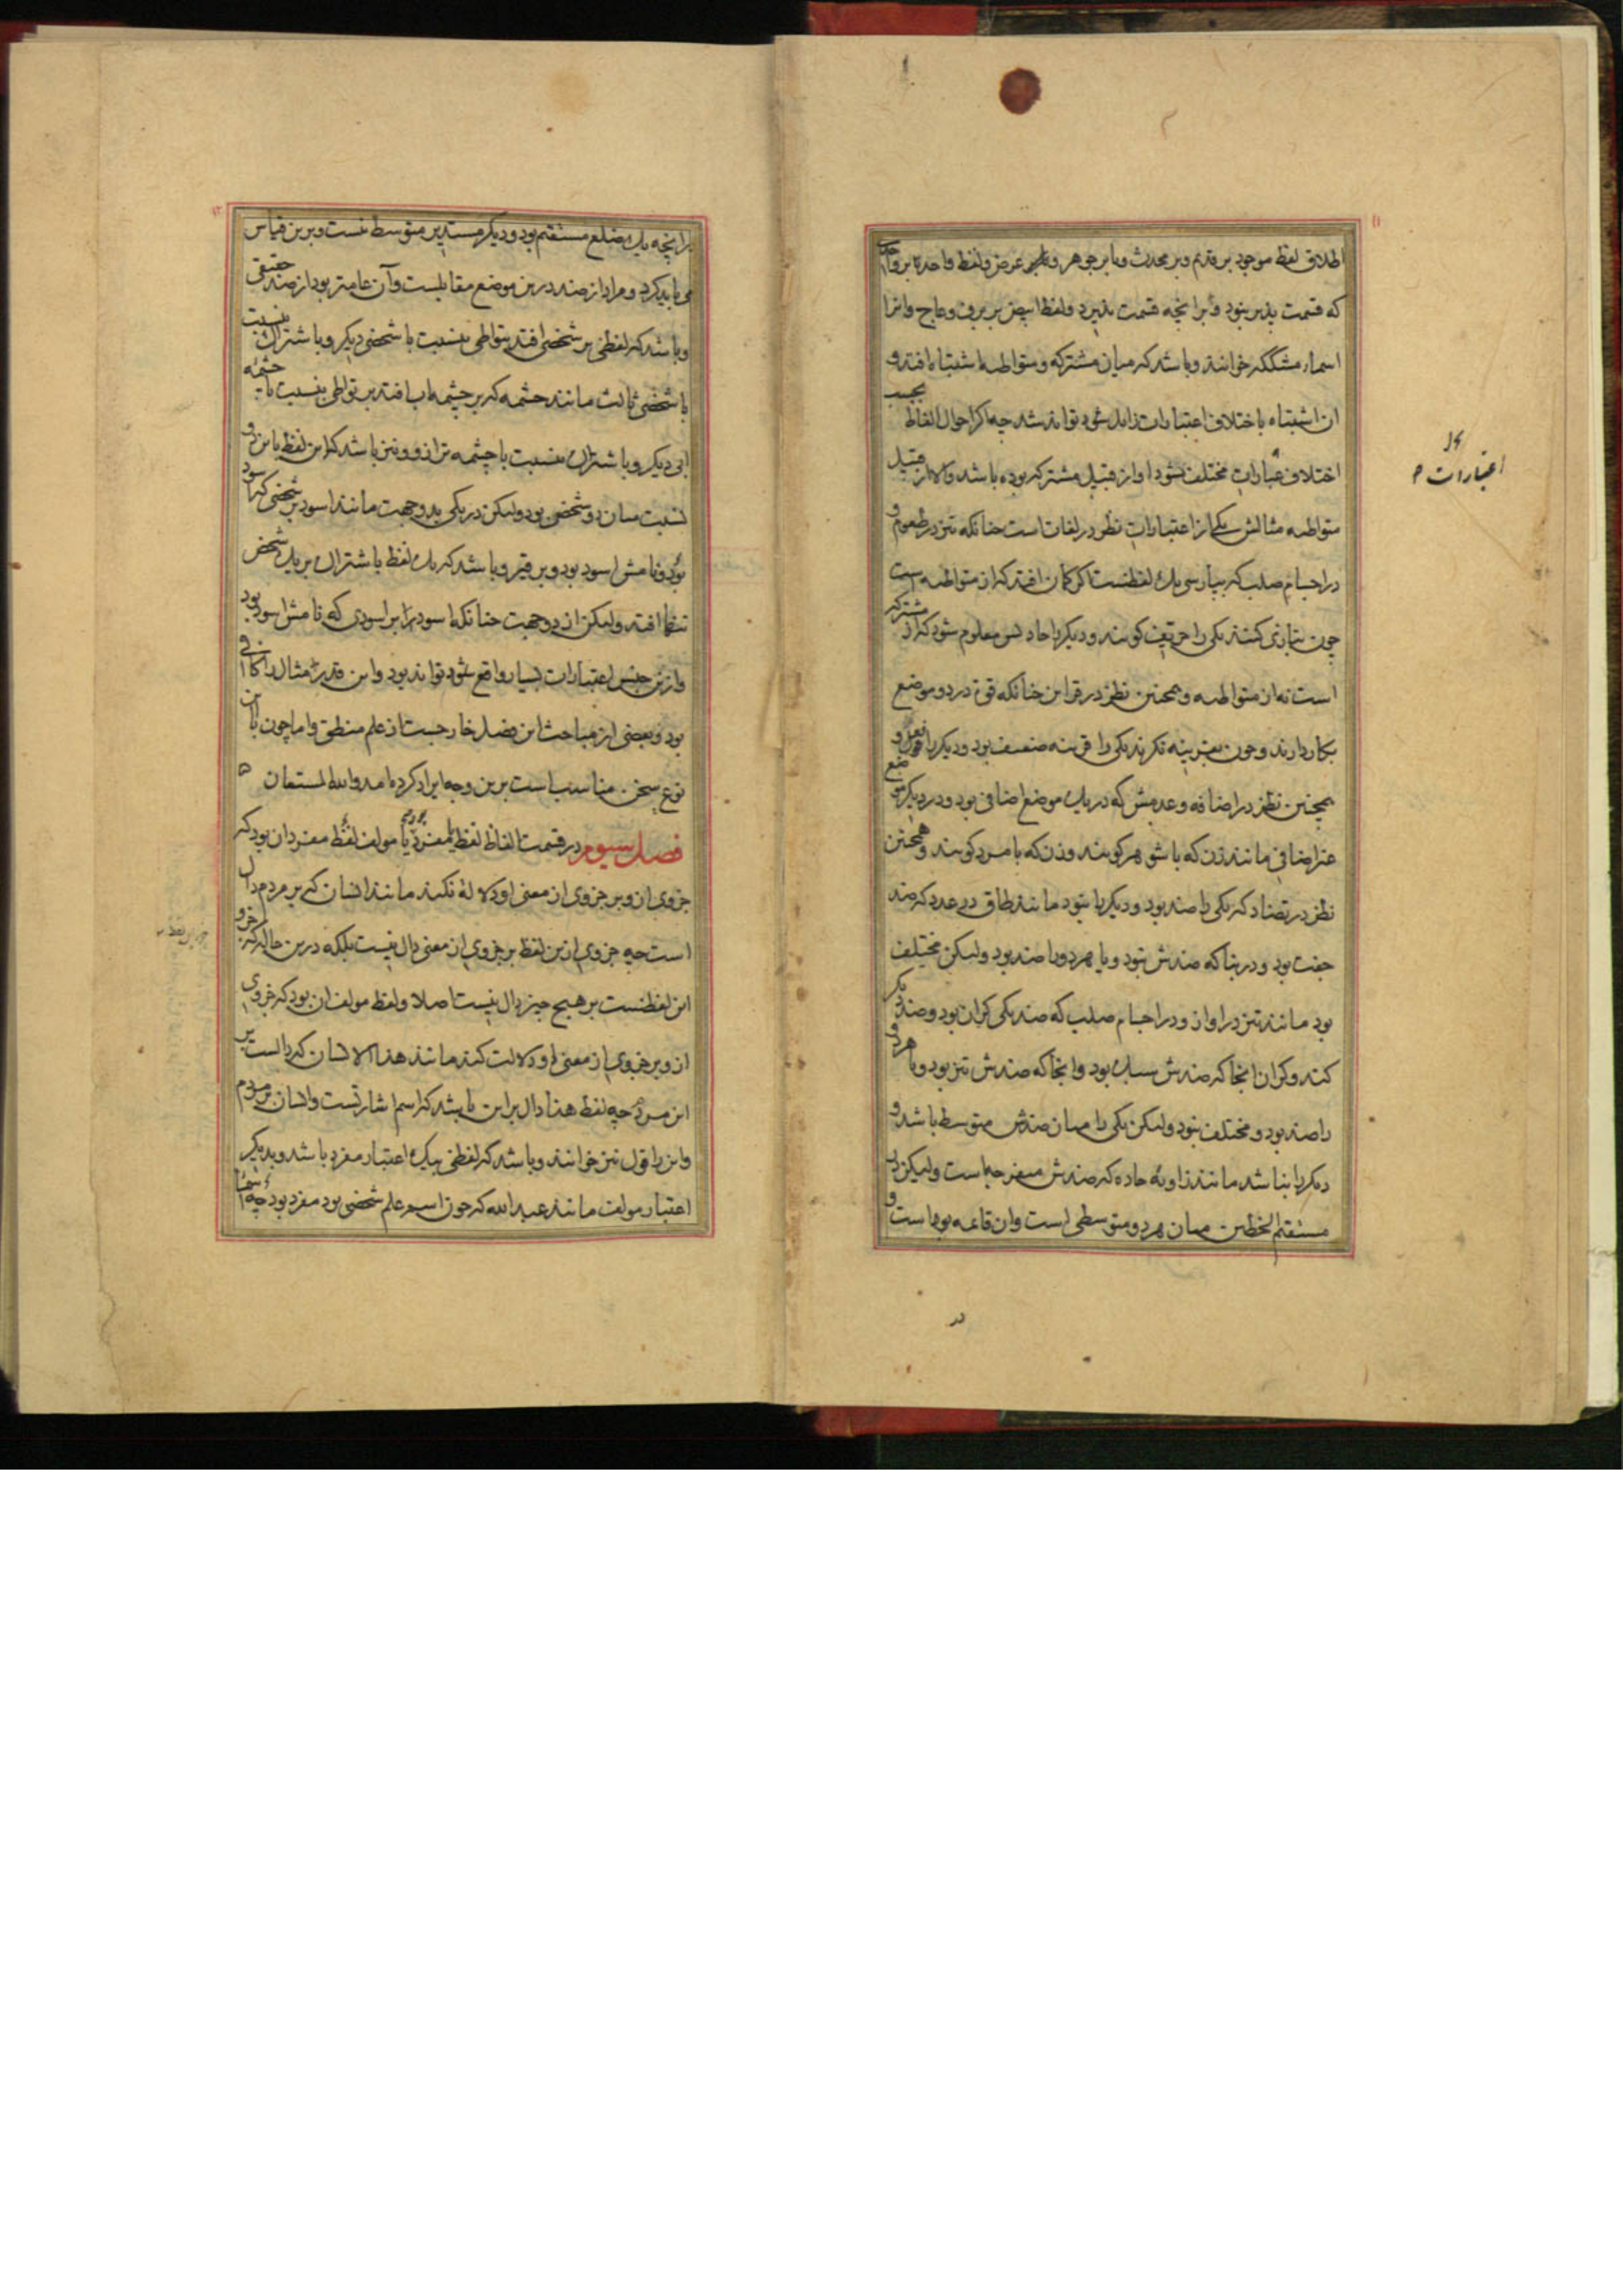 ۱۱
اطلاق لفظ موجود بر قدیم و بر محدث و یا بر جوهر و بر عرض و لفظ واحد یا بر واحدی
که قسمت پذیر نبود و یا بر انچه قسمت پذیرد و لفظ ابیض بر برف و عاج و انرا
اسماء مشککه خوانند و باشد که میان مشترکه و متواطیه اشتباه افتد و
ان اشتباه باختلاف اعتبارات زایل شود تواند شد چه اکر احوال الفاظ بحسب
اختلاف عبارات مختلف نشود او از قبیل مشترکه بوده باشد والا از قبیل
متواطیه مثالش یکی از اعتبارات نظر در لغات است چنانکه تیز در طعوم و
در اجسام صلب که بپارسی یک لفظست اکر کمان افتد که از متواطیه است
چون بتازی کنند یکی را حریف کویند و دیکر را حاد پس معلوم شود که از مشترکه
است نه از متواطیه و همچنین نظر در قراین چنانکه قوة در دو موضع
بکار دارند و چون بقرینه نکرند یکی را قرینه ضعف بود و دیکر را فعل و
همچنین نظر در اضافه و عدمش که در یک موضع اضافی بود و در دیکر موضع
غیر اضافی مانند زن که با شوهر کویند و زن که با مرد کویند و همچنین
نظر در تضاد که یکی را ضد بود و دیکر را نبود مانند طاق در عدد که ضد
جفت بود و در بنا که ضدش نبود و یا هر دو را ضد بود ولیکن مختلف
بود مانند تیز در اواز و در اجسام صلب که ضد یکی کران بود و ضد دیکر
کند و کران انجا که ضدش سبک بود و انجا که ضدش تیز بود و یا هر دو
را ضد بود و مختلف نبود ولیکن یکی را میان ضدش متوسط باشد و
دیکر را نباشد مانند زاویه حاده که ضدش منفرجه است ولیکن در
مستقیم الخطین میان هر دو متوسطی است و ان قائمه بود است و
اعتبارات
۱۲
در انچه یک ضلع مستقیم بود و دیکر مستدیر متوسط نیست و برین قیاس
می باید کرد و مراد از ضد درین موضع مقابلیست و آن عامتر بود از ضد حقیقی
و باشد که لفظی بر شخصی افتد بتواطی بنسبت با شخصی دیکر و باشتراک بنسبت
با شخصی ثالث مانند چشمه که بر چشمه اب افتد بر تواطی بنسبت با چشمه
ابی دیکر و باشتراک بنسبت با چشمه ترازو و نیز باشد که این لفظ باین دو
نسبت میان دو شخص بود ولیکن در یکی بدو جهت مانند اسود بر شخصی که اسود
بود و نامش اسود بود و بر قیر و باشد که یک لفظ باشتراک بر یک شخص
تنها افتد ولیکن از دو جهت چنانکه اسود بر اسودی که نامش اسود بود
و ازین جنس اعتبارات بسیار واقع شود تواند بود و این قدر مثال را کافی
بود و بعضی از مباحث این فصل خارجست از علم منطق و اما چون باین
نوع سخن مناسب است برین وجه ایراد کرده امد والله المستعان
فصل سیوم در قسمت الفاظ لفظ یا مفرد بود یا مولف لفظ مفرد ان بود که
جزوی از و بر جزوی از معنی او دلالة نکند مانند انسان که بر مردم دال
است چه جزوی ازین لفظ بر جزوی از معنی دال نیست بلکه درین حال که جزو
این لفظست بر هیچ چیز دال نیست اصلا و لفظ مولف ان بود که جزوی
از و بر جزوی از معنی او دلالت کند مانند هذا الانسان که دالست بر
این مرد چه لفظ هذا دال بر این باشد که اسم اشارتست و انسان بر مردم
و این را قول نیز خوانند و باشد که لفظی بیک اعتبار مفرد باشد و بدیکر
اعتبار مولف مانند عبد الله که چون اسم علم شخصی بود مفرد بود چه